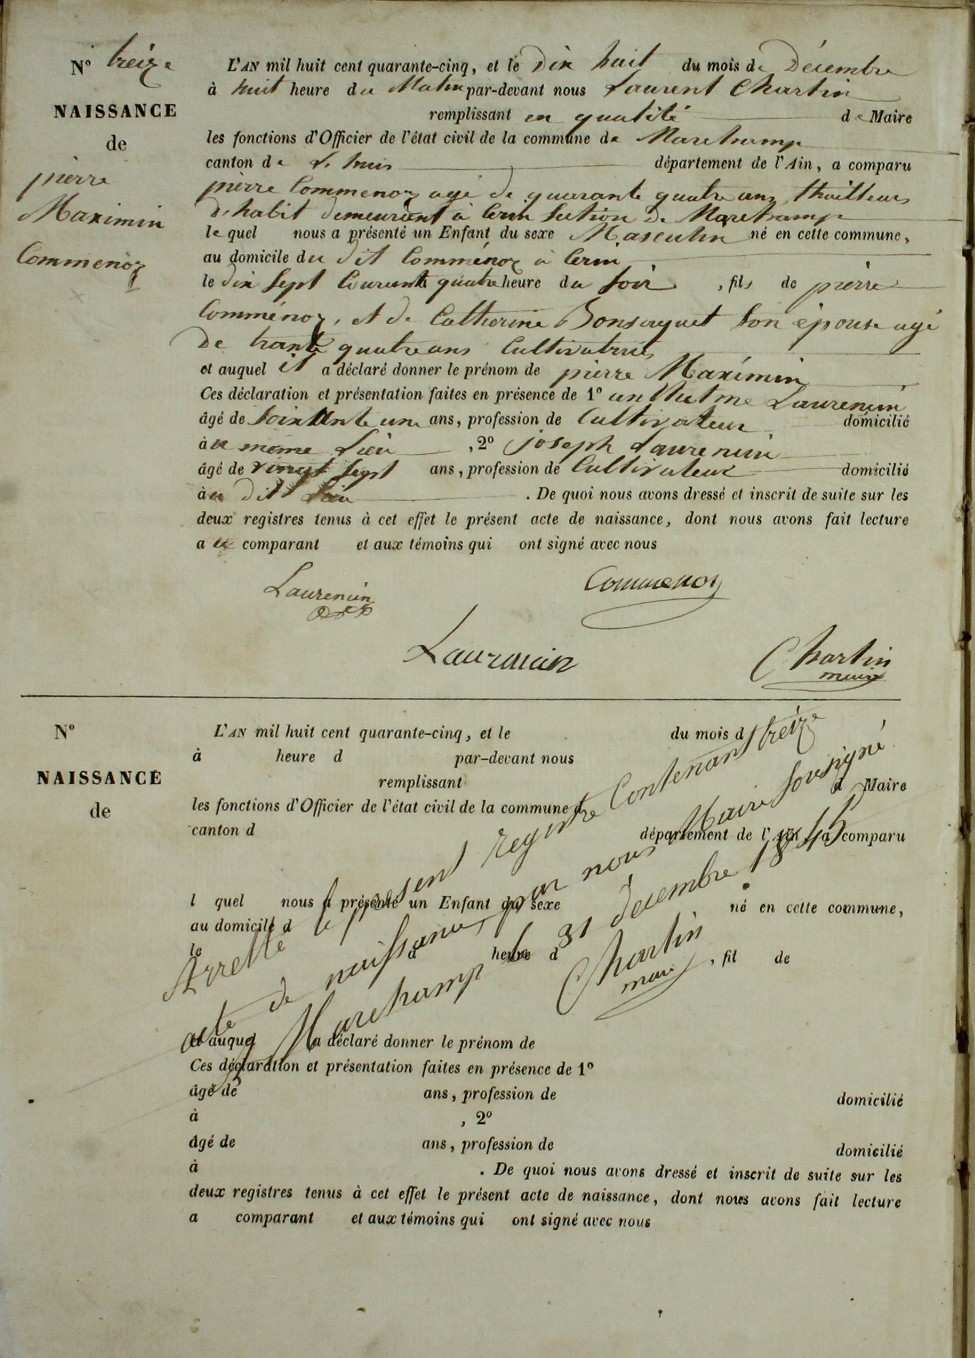 N° treize
NAISSANCE
de
pierre
Maximin
Commenoz
L'AN mil huit cent quarante-cinq, et le dix huit du mois de Décembre
à huit heure du Matin par-devant nous Laurent Chartin
remplissant en qualité de Maire
les fonctions d'Officier de l'état civil de la commune de Marchamp
canton de département de l'Ain, a comparu
pierre Commenoz agé de quarante quatre ans thailleur
d'habit demeurant à Cerin section de Marchamp
le quel nous a présenté un Enfant du sexe Masculin né en cette commune,
au domicile du dit Comménoz à Cerin
le dix sept Courant quatre heure du soir, fils de pierre
Comménoz, et de Catherine son épouse agé
de trante quatre ans Cultivatrice
et auquel il a déclaré donner le prénom de pierre Maximin
Ces déclaration et présentation faites en présence de 1° anthelme Laurencin
âgé de soixante une ans, profession de Cultivateur domicilié
à u même Lieu, 2° joseph Laurencin
âgé de vingt sept ans, profession de Cultivateur domicilié
à u dit Lieu. De quoi nous avons dressé et inscrit de suite sur les
deux registres tenus à cet effet le présent acte de naissance, dont nous avons fait lecture
a u comparant et aux témoins qui ont signé avec nous
Laurencin
Commenoz
Laurencin
Chartin
maire
N°
NAISSANCE
de
L'AN mil huit cent quarante-cinq, et le du mois d
à heure d par-devant nous
remplissant d Maire
les fonctions d'Officier de l'état civil de la commune d
canton d département de l'Ain, a comparu
l quel nous a présenté un Enfant du sexe né en cette commune,
au domicile d
le à heure d, fil de
et auquel a déclaré donner le prénom de
Ces déclaration et présentation faites en présence de 1°
âgé de ans, profession de domicilié
à, 2°
âgé de ans, profession de domicilié
à. De quoi nous avons dressé et inscrit de suite sur les
deux registres tenus à cet effet le présent acte de naissance, dont nous avons fait lecture
a comparant et aux témoins qui ont signé avec nous
Arretté le présent registre Contenant treize
acte de naissance, par nous Maire sousigné
à Marchamp le 31 décembre 1845
Chartin
maire